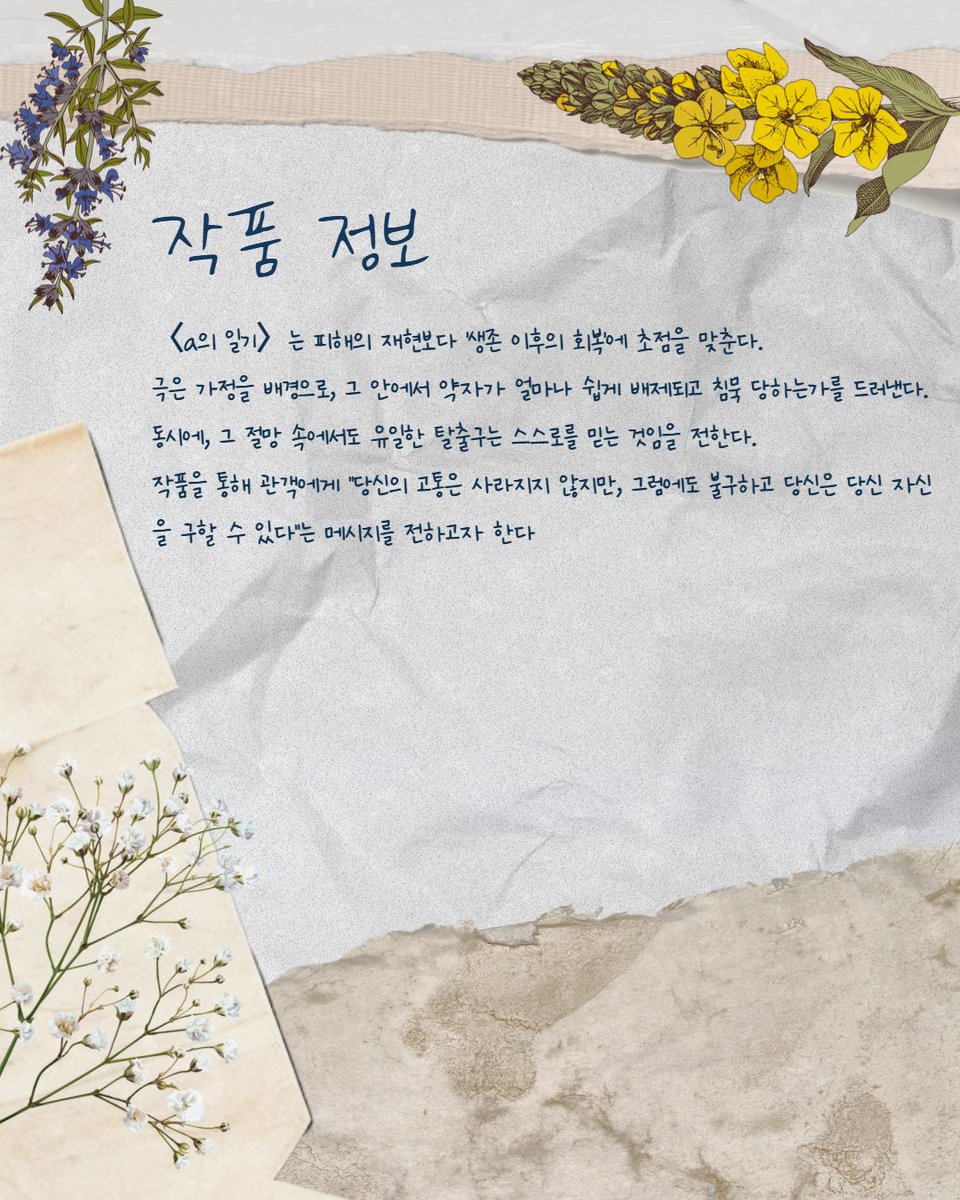 작품 정보
〈a의 일기〉 는 피해의 재현보다 '생존 이후의 회복'에 초점을 맞춘다.
극은 가정을 배경으로, 그 안에서 약자가 얼마나 쉽게 배제되고 침묵 당하는가를 드러낸다.
동시에, 그 절망 속에서도 유일한 탈출구는 스스로를 믿는 것임을 전한다.
작품을 통해 관객에게 "당신의 고통은 사라지지 않지만, 그럼에도 불구하고 당신은 당신 자신
을 구할 수 있다"는 메시지를 전하고자 한다